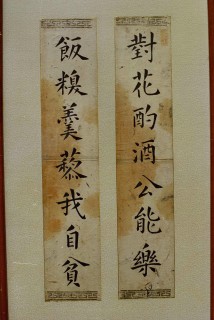 對花酌酒公能樂
飯糗羹藜我自貧